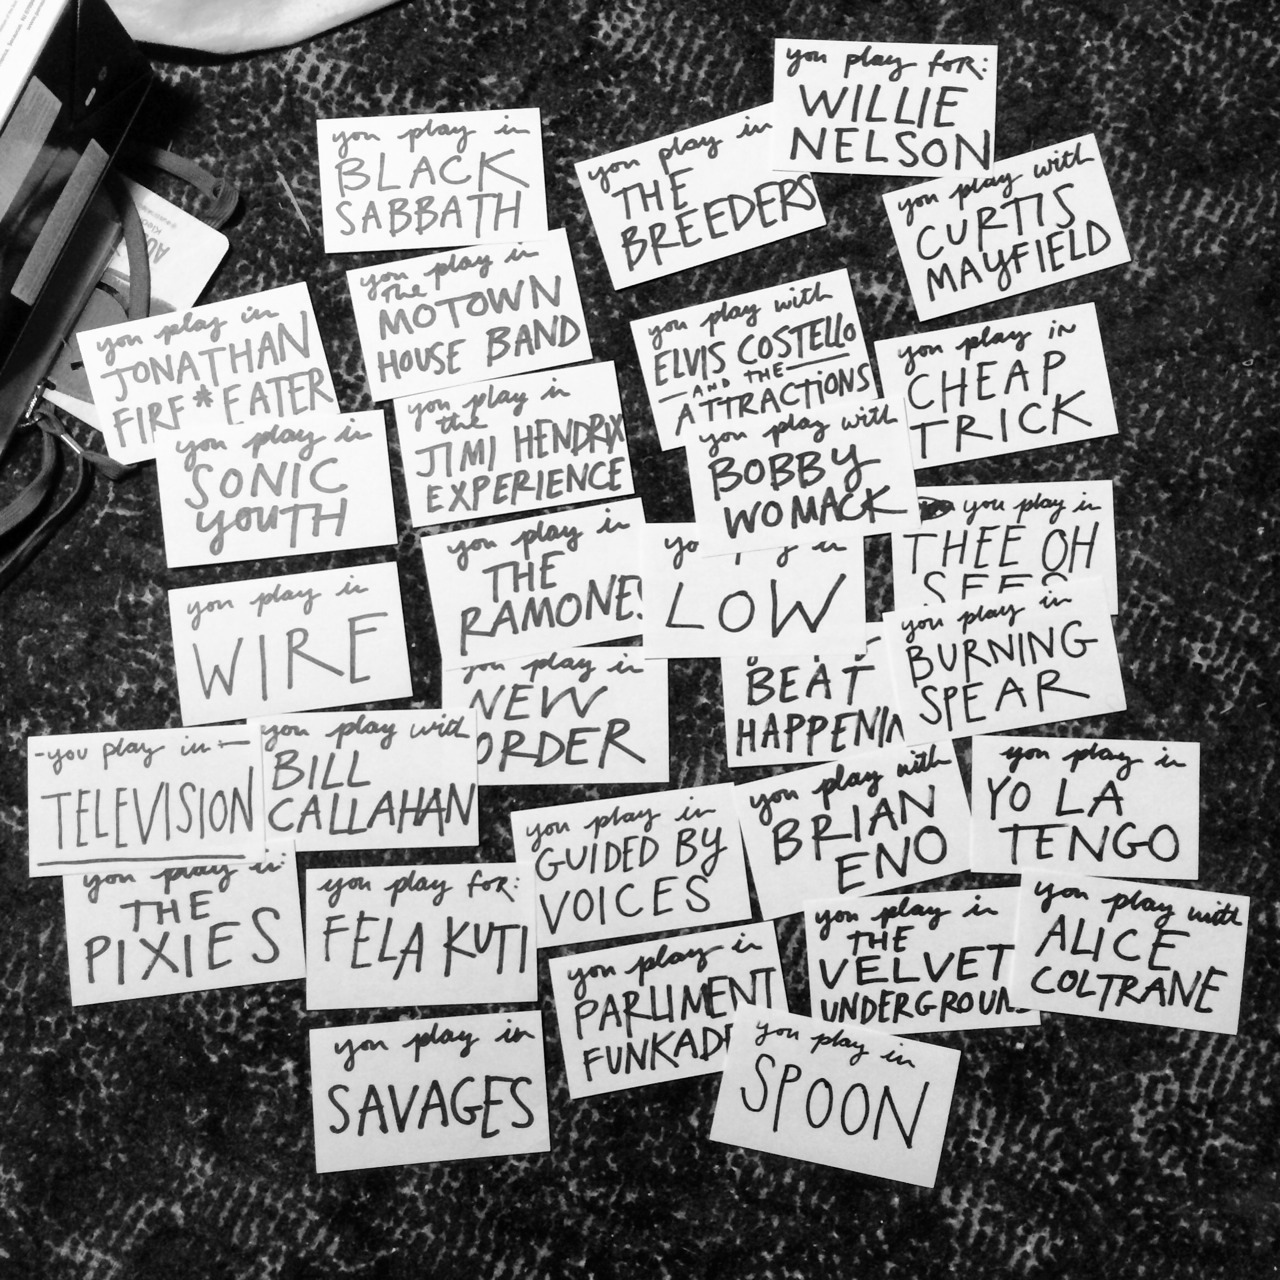 you play for:
WILLIE
NELSON
you play in
BLACK
SABBATH
you play in
THE
BREEDERS
you play with
CURTIS
MAYFIELD
you play in
the
MOTOWN
HOUSE BAND
you play in
JONATHAN
FIRE*EATER
you play with
ELVIS COSTELLO
AND THE
ATTRACTIONS
you play in
CHEAP
TRICK
you play in
the
JIMI HENDRIX
EXPERIENCE
you play in
SONIC
YOUTH
you play with
BOBBY
WOMACK
you play in
THEE OH
SEES
you play in
THE
RAMONES
in
LOW
you play in
WIRE
you play in
BURNING
SPEAR
BEAT
HAPPENIN
you play in
NEW
ORDER
-you play in:-
TELEVISION
you play with
BILL
CALLAHAN
you play in
YO LA
TENGO
you play with
BRIAN
ENO
you play in
GUIDED BY
VOICES
you play in
THE
PIXIES
you play for:
FELA KUTI
you play in
THE
VELVET
UNDERGROUN
you play with
ALICE
COLTRANE
you play in
PARLIMENT
FUNKAD
you play in
SAVAGES
you play in
SPOON